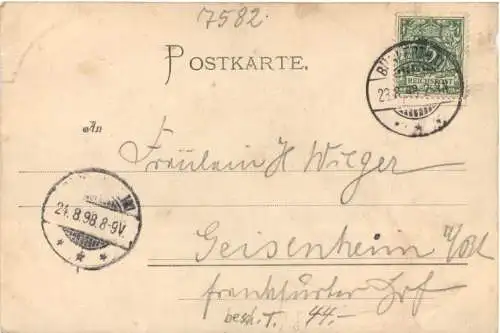 7582
POSTKARTE.
REICHSPOST
23.8.98
An
Fräulein H Wieger
24.8.98.8-9V.
Geisenheim
frankfurter Hof
besch. T. 44.-